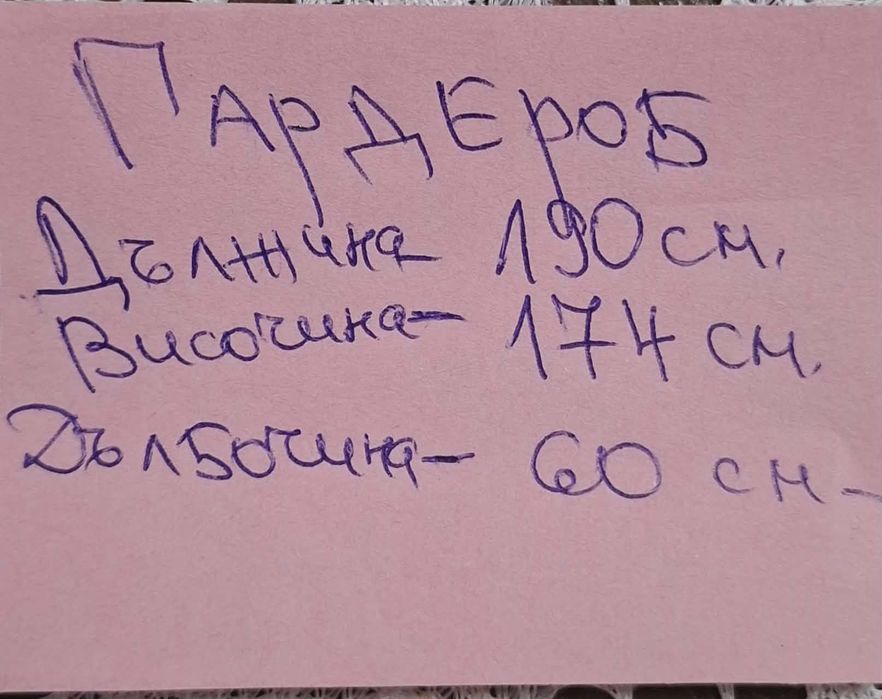 ГАрДЕроБ
Дължина 190 см.
Височина- 174 см.
Дълбочина- 60 см-